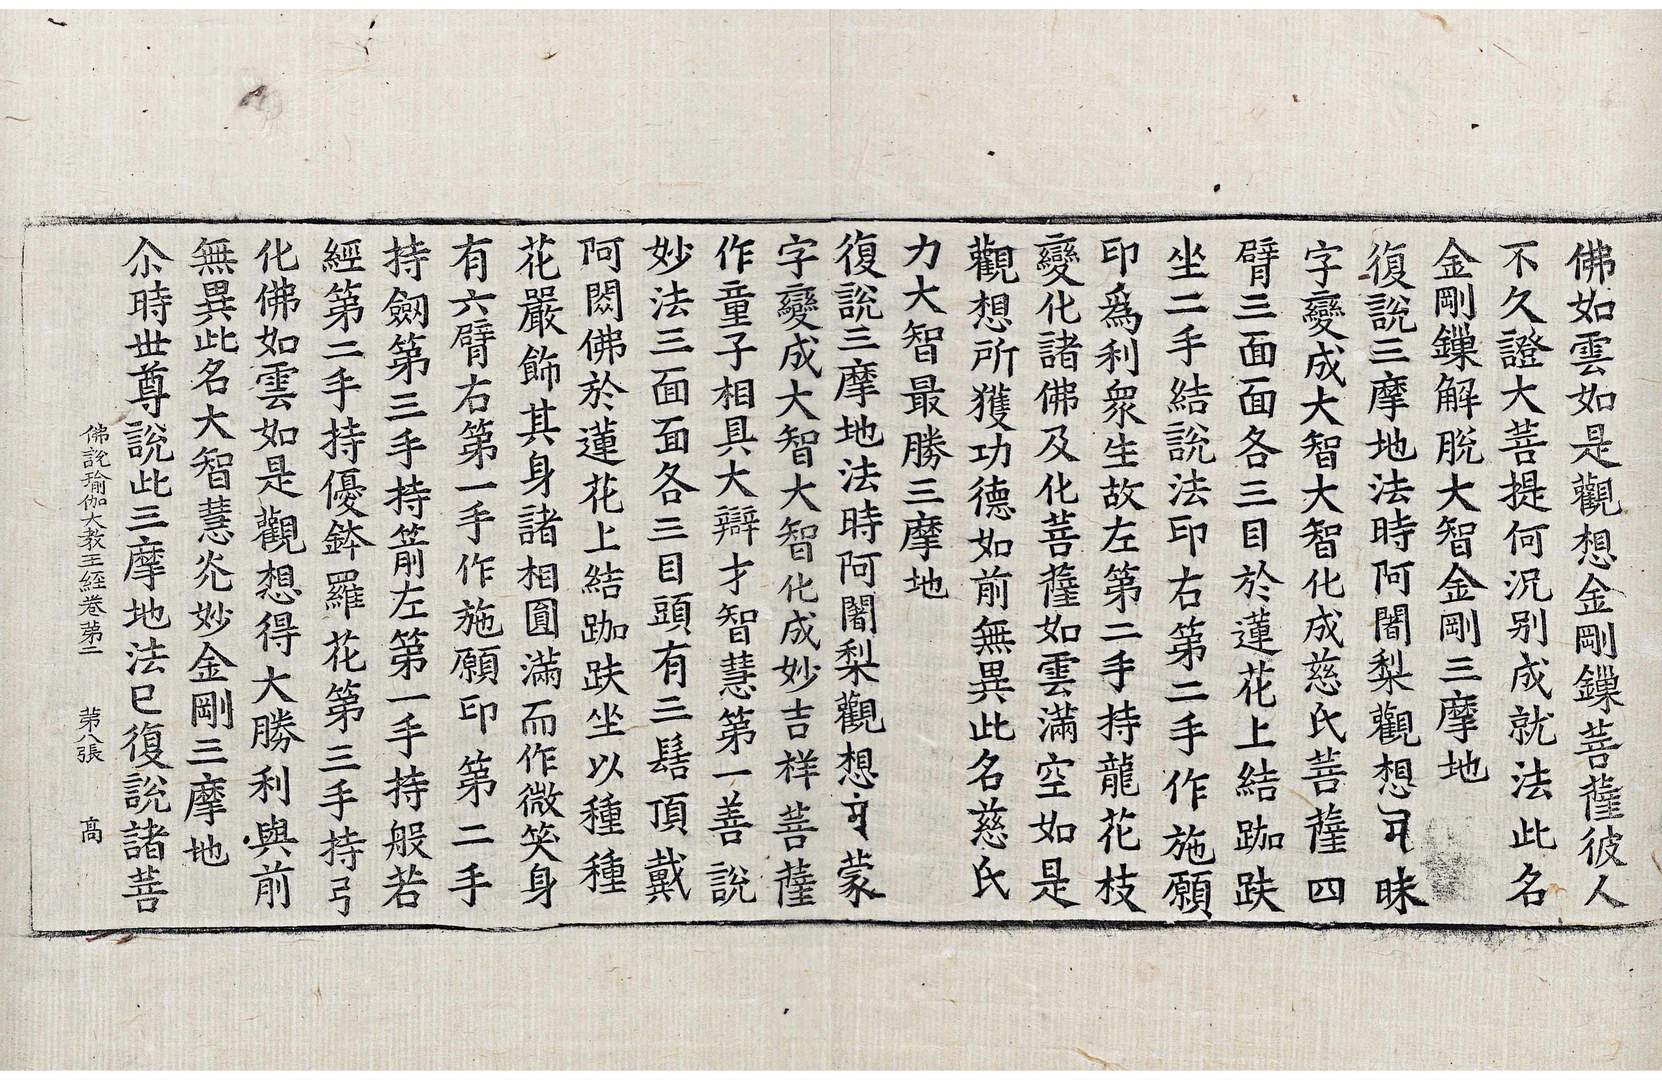 佛如雲如是觀想金剛鏁菩薩彼人
不久證大菩提何況别成就法此名
金剛鏁解脫大智金剛三摩地
復說三摩地法時阿闍梨觀想昧
字變成大智大智化成慈氏菩薩四
臂三面面各三目於蓮花上結跏趺
坐二手結說法印右第二手作施願
印爲利衆生故左第二手持龍花枝
變化諸佛及化菩薩如雲滿空如是
觀想所獲功德如前無異此名慈氏
力大智最勝三摩地
復說三摩地法時阿闍梨觀想蒙
字變成大智大智化成妙吉祥菩薩
作童子相具大辯才智慧第一善說
妙法三面面各三目頭有三髻頂戴
阿閦佛於蓮花上結跏趺坐以種種
花嚴飾其身諸相圓滿而作微笑身
有六臂右第一手作施願印第二手
持劒第三手持箭左第一手持般若
經第二手持優鉢羅花第三手持弓
化佛如雲如是觀想得大勝利與前
無異此名大智慧光妙金剛三摩地
尒時世尊說此三摩地法已復說諸菩
佛說瑜伽大教王經卷第二 第八張 高